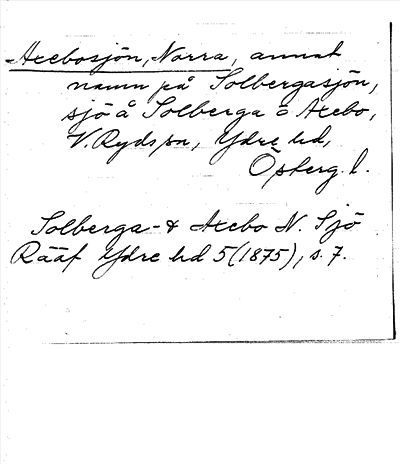 Axebosjön, Norra, annat
namn på Solbergasjön,
sjö å Solberga o Axebo,
V. Ryds sn, Ydre hd,
Östergl.
Solberga- & Axebo N. Sjö
Rääf Ydre hd 5 (1875), s. 7.